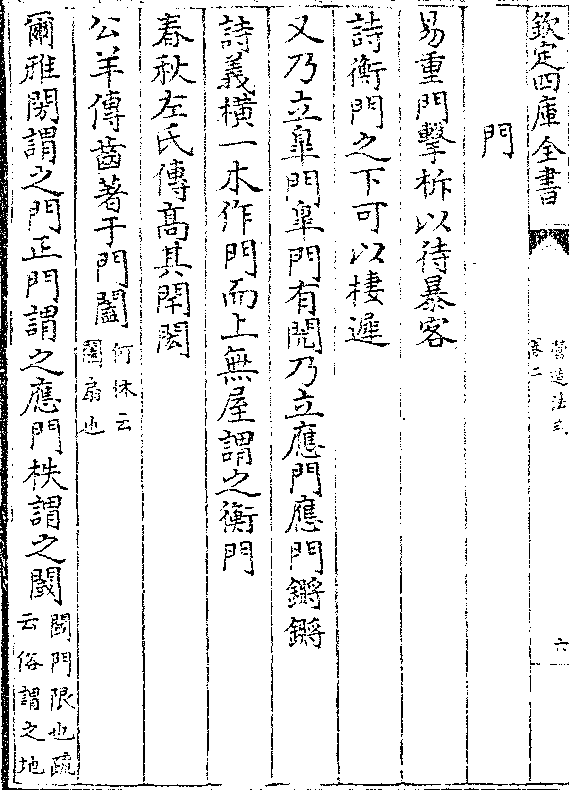 欽定四庫全書
營造法式
卷二
六
門
易重門擊柝以待暴客
詩衡門之下可以棲遲
又乃立臯門臯門有閌乃立應門應門鏘鏘
詩義橫一木作門而上無屋謂之衡門
春秋左氏傳高其閈閎
公羊傳齒著于門闔何休云闔扇也
爾雅閍謂之門正門謂之應門柣謂之閾閾門限也疏云俗謂之地